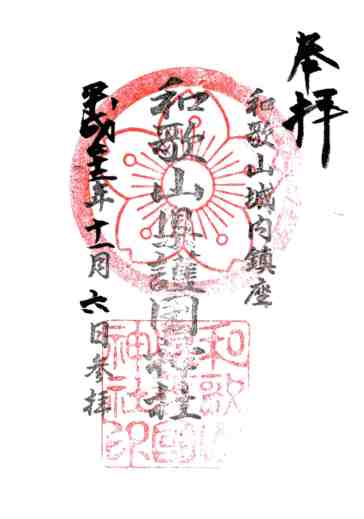 奉拝
和歌山城内鎮座
和歌山県護国神社
平成二十三年十一月六日参拝
和歌山県護国神社印